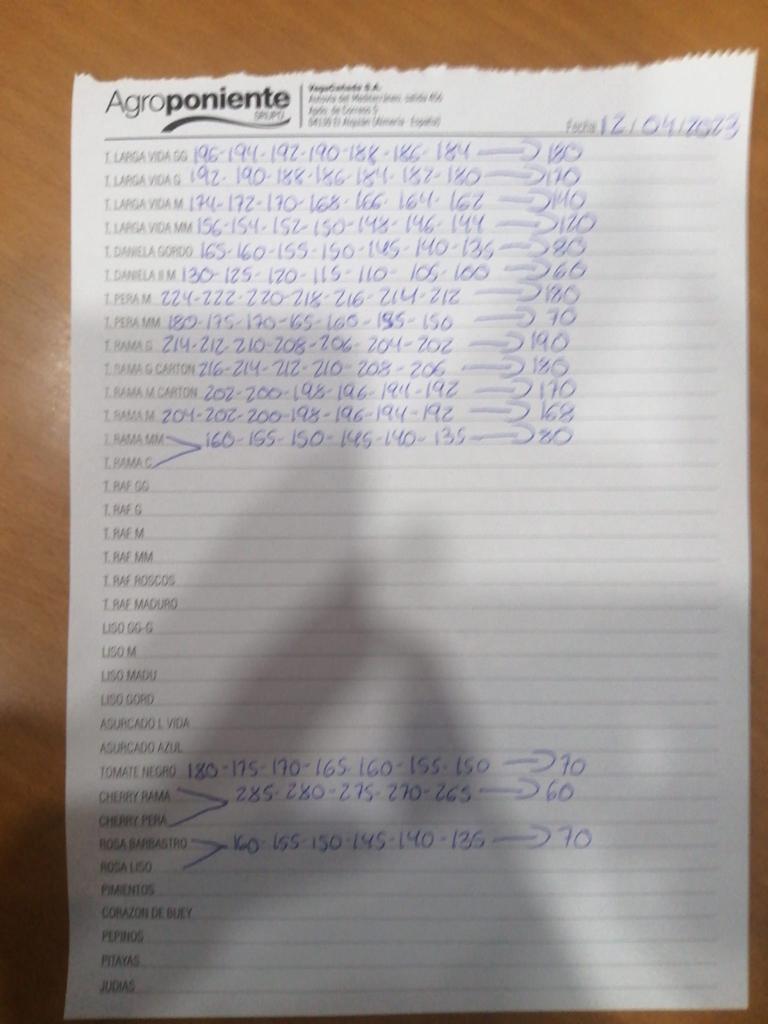 Agroponiente
GRUPO
VegaCañada S.A.
Autovía del Mediterráneo, salida 456
Apdo. de Correos 5
04130 El Alquián (Almería - España)
Fecha 12/04/2023
T. LARGA VIDA GG 196-194-192-190-188-186-184 → 180
T. LARGA VIDA G 192-190-188-186-184-182-180 → 170
T. LARGA VIDA M 174-172-170-168-166-164-162 → 140
T. LARGA VIDA MM 156-154-152-150-148-146-144 → 120
T. DANIELA GORDO 165-160-155-150-145-140-135 → 80
T. DANIELA II M 130-125-120-115-110-105-100 → 60
T. PERA M 224-222-220-218-216-214-212 → 180
T. PERA MM 180-175-170-165-160-155-150 → 70
T. RAMA G 214-212-210-208-206-204-202 → 190
T. RAMA G CARTON 216-214-212-210-208-206 → 180
T. RAMA M CARTON 202-200-198-196-194-192 → 170
T. RAMA M 204-202-200-198-196-194-192 → 168
T. RAMA MM 160-155-150-145-140-135 → 80
T. RAMA C
T. RAF GG
T. RAF G
T. RAF M
T. RAF MM
T. RAF ROSCOS
T. RAF MADURO
LISO GG-G
LISO M
LISO MADU
LISO GORD
ASURCADO L VIDA
ASURCADO AZUL
TOMATE NEGRO 180-175-170-165-160-155-150 → 70
CHERRY RAMA 285-280-275-270-265 → 60
CHERRY PERA
ROSA BARBASTRO 160-155-150-145-140-135 → 70
ROSA LISO
PIMIENTOS
CORAZON DE BUEY
PEPINOS
PITAYAS
JUDIAS